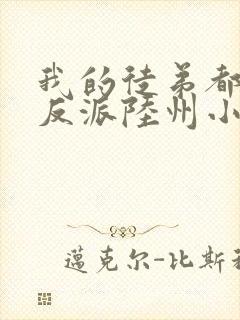 我的徒弟都
反派陸州小
邁克尔-比斯